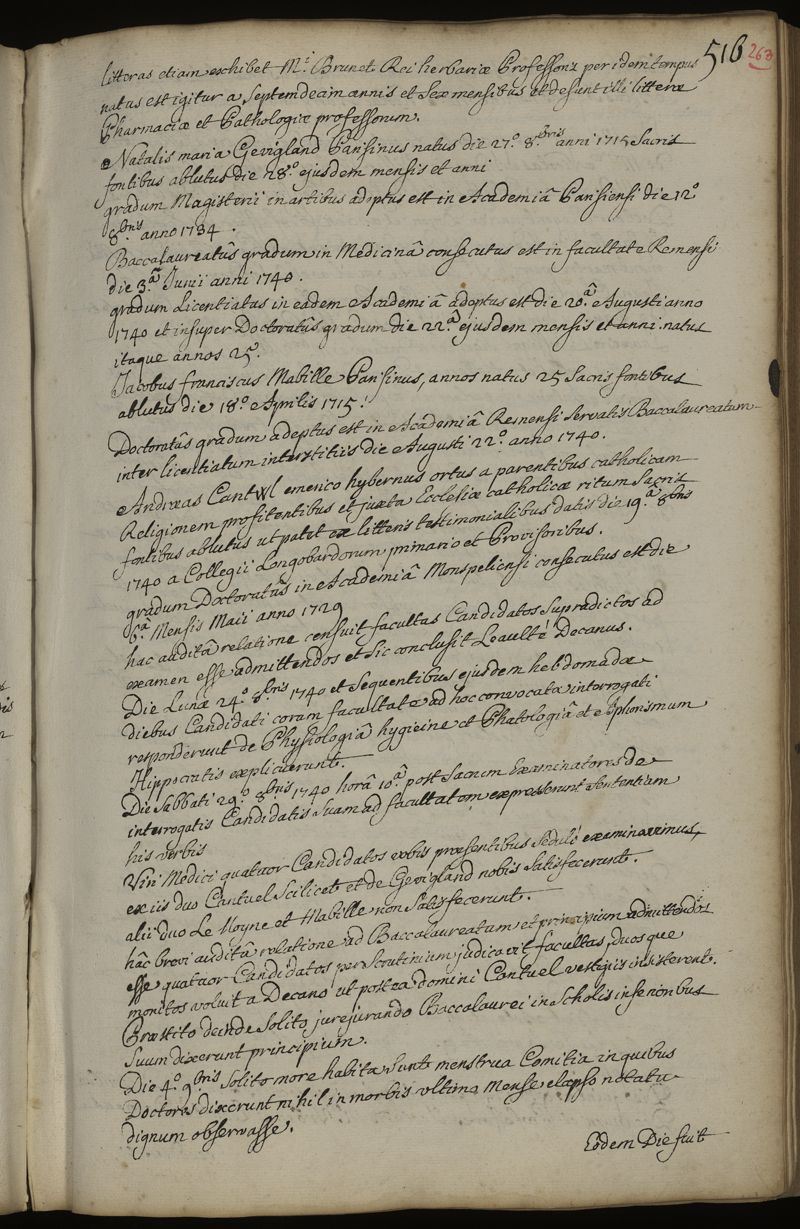 516 263
litteras etiam exhibet Mr. Brunet Rei herbariæ Professoris per idem tempus
natus est igitur a septemdecim annis et sex mensibus et desunt illi litteræ
Pharmaciæ et Pathologiæ professorum.
Natalis maria Gevigland Parisinus natus die 27.º 8.bris anni 1715 Sacris
fontibus ablutus die 28.º ejusdem mensis et anni
gradum Magisterii in artibus adeptus est in Academiâ Parisiensi die 12º
8bris anno 1734.
Baccalaureatûs gradum in Medicinâ consecutus est in facultate Remensi
die 3.a Junii anni 1740.
gradum Licentiatus in eadem Academiâ adeptus est die 20.a Augusti anno
1740 et insuper Doctoratûs gradum die 22.a ejusdem mensis et anni. natus
itaque annos 25.
Jacobus franciscus Mabille Parisinus, annos natus 25 Sacris fontibus
ablutus die 18.º Aprilis 1715.
Doctoratûs gradum adeptus est in Academiâ Remensi servatis Baccalaureatum
inter licentiatum interstitiis die Augusti 22.º anno 1740.
Andræas Cantwl emerico hybernus ortus a parentibus catholicam
Religionem profitentibus et juxta Ecclesiæ catholicæ ritum Sacris
fontibus ablutus ut patet ex litteris testimonialibus datis die 19.a 8bris
1740 a Collegii Longobardorum primario et Provisoribus.
gradum Doctoratûs in Academiâ Monspeliensi consecutus est die
6.a Mensis Maii anno 1729
hac auditâ relatione censuit facultas Candidatos supradictos ad
examen esse admittendos et sic conclusit Leaulté Decanus.
Die Lunæ 24.º 8bris 1740 et sequentibus ejusdem hebdomadæ
diebus Candidati coram facultate ad hoc convocata interrogati
responderunt de Physiologiâ hygieine et Phatologiâ et aphorismum
Hippocratis explicuerunt.
Die Sabbati 29.º 8bris 1740 horâ 10.a post Sacrum Examinatores de
interrogatis Candidatis suam ad facultatem expresserunt sententiam
his verbis
Viri Medici quatuor Candidatos vobis præsentibus sedulò examinavimus,
ex iis duo Cantuel scilicet et de Gevigland nobis satisfecerunt.
alii duo Le Moyne et Mabille non satisfecerunt.
hâc brevi auditâ relatione ad Baccalaureatum et principium admittendos
esse quatuor Candidatos per scrutinium judicavit facultas, duosque
monitos voluit a Decano ut postea domini Cantuel vestigiis insisterent.
Præstito deinde solito jurejurando Baccalaurei in Scholis inferioribus
suum dixerunt principium.
Die 4.º 9bris solito more habita sunt menstrua Comitia in quibus
Doctores dixerunt nihil in morbis ultimo mense elapso notatu
dignum observasse.
Eodem Die fuit